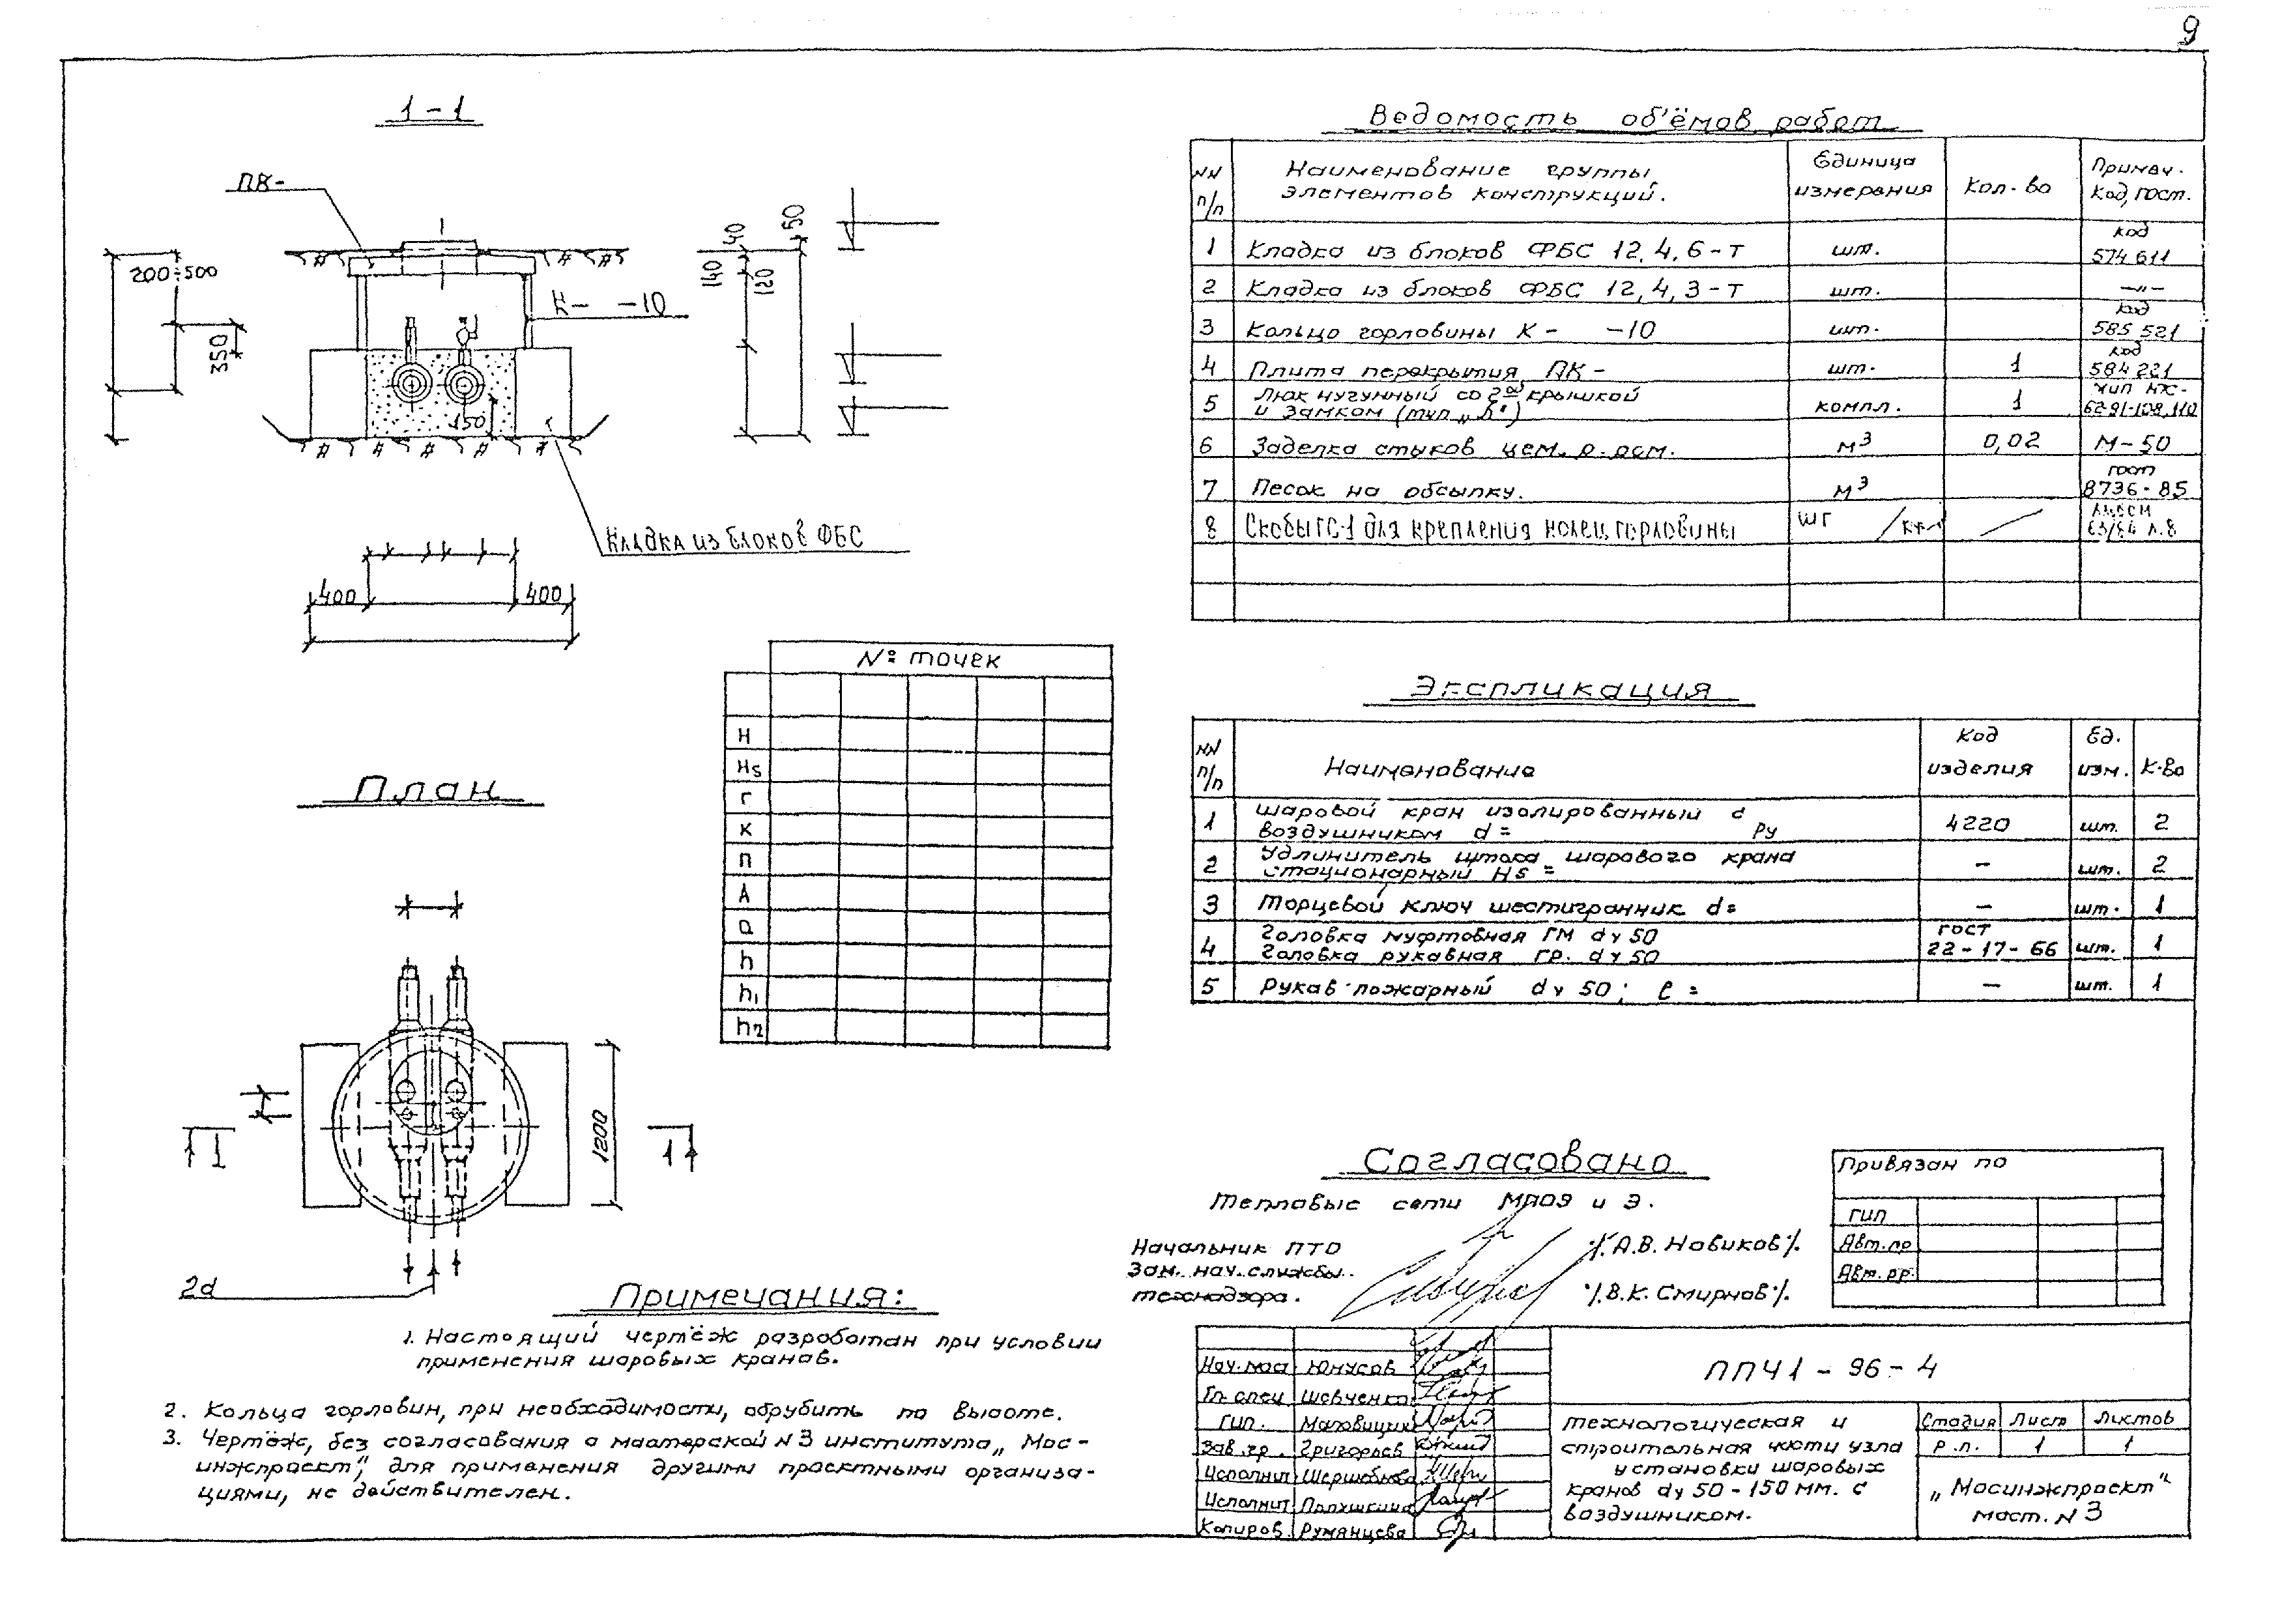 9
1-1
ПК-
200÷500
350
К- -10
150
140
40
120
50
Кладка из блоков ФБС
400
400
План
1200
1
1
2d
№ точек
H
Hs
Г
К
П
А
а
h
h₁
h₂
Ведомость об'ёмов работ
NN п/п
Наименование группы элементов конструкций.
Единица измерения
Кол-во
Примеч. Код, гост.
1 Кладка из блоков ФБС 12,4,6-Т шт. код 574 611
2 Кладка из блоков ФБС 12,4,3-Т шт. —"—
3 Кольцо горловины К- -10 шт. код 585 521
4 Плита перекрытия ПК- шт. 1 код 584 221
5 Люк чугунный со 2ой крышкой и замком (тип „Л") компл. 1
6 Заделка стыков цем. р. рсм. м³ 0,02 М-50
7 Песок на обсыпку. м³ гост 8736-85
8 Скобы ГС-1 для крепления колец горловины шт / кг /
Экспликация
NN п/п
Наименование
Код изделия
Ед. изм.
К-во
1 Шаровой кран изолированный с воздушником d= Ру 4220 шт. 2
2 Удлинитель штока шарового крана стационарный Hs = — шт. 2
3 Торцевой ключ шестигранник d= — шт. 1
4 Головка муфтовная ГМ dу 50 Головка рукавная ГР. dу 50 ГОСТ 22-17-66 шт. 1
5 Рукав пожарный dу 50; ℓ = — шт. 1
Согласовано
Тепловые сети МПОЭ и Э.
Начальник ПТО /.А.В. Новиков/.
Зам. нач. службы
технадзора. /.В.К. Смирнов/.
Привязан по
ГИП
Авт.пр
Авт.пр.
Примечания:
1. Настоящий чертёж разработан при условии
применения шаровых кранов.
2. Кольца горловин, при необходимости, обрубить по высоте.
3. Чертёж, без согласования с мастерской N3 института „Мос-
инжпроект", для применения другими проектными организа-
циями, не действителен.
Нач.маст Юнусов
Гл.спец Шевченко
ГИП.
Зав.гр. Григорьев
Исполнит
Исполнит
Копиров. Румянцева
ППЧ1-96-4
Технологическая и
строительная части узла
установки шаровых
кранов dу 50-150 мм. с
воздушником.
Стадия Лист Листов
Р.п. 1 1
„Мосинжпроект"
маст. N 3